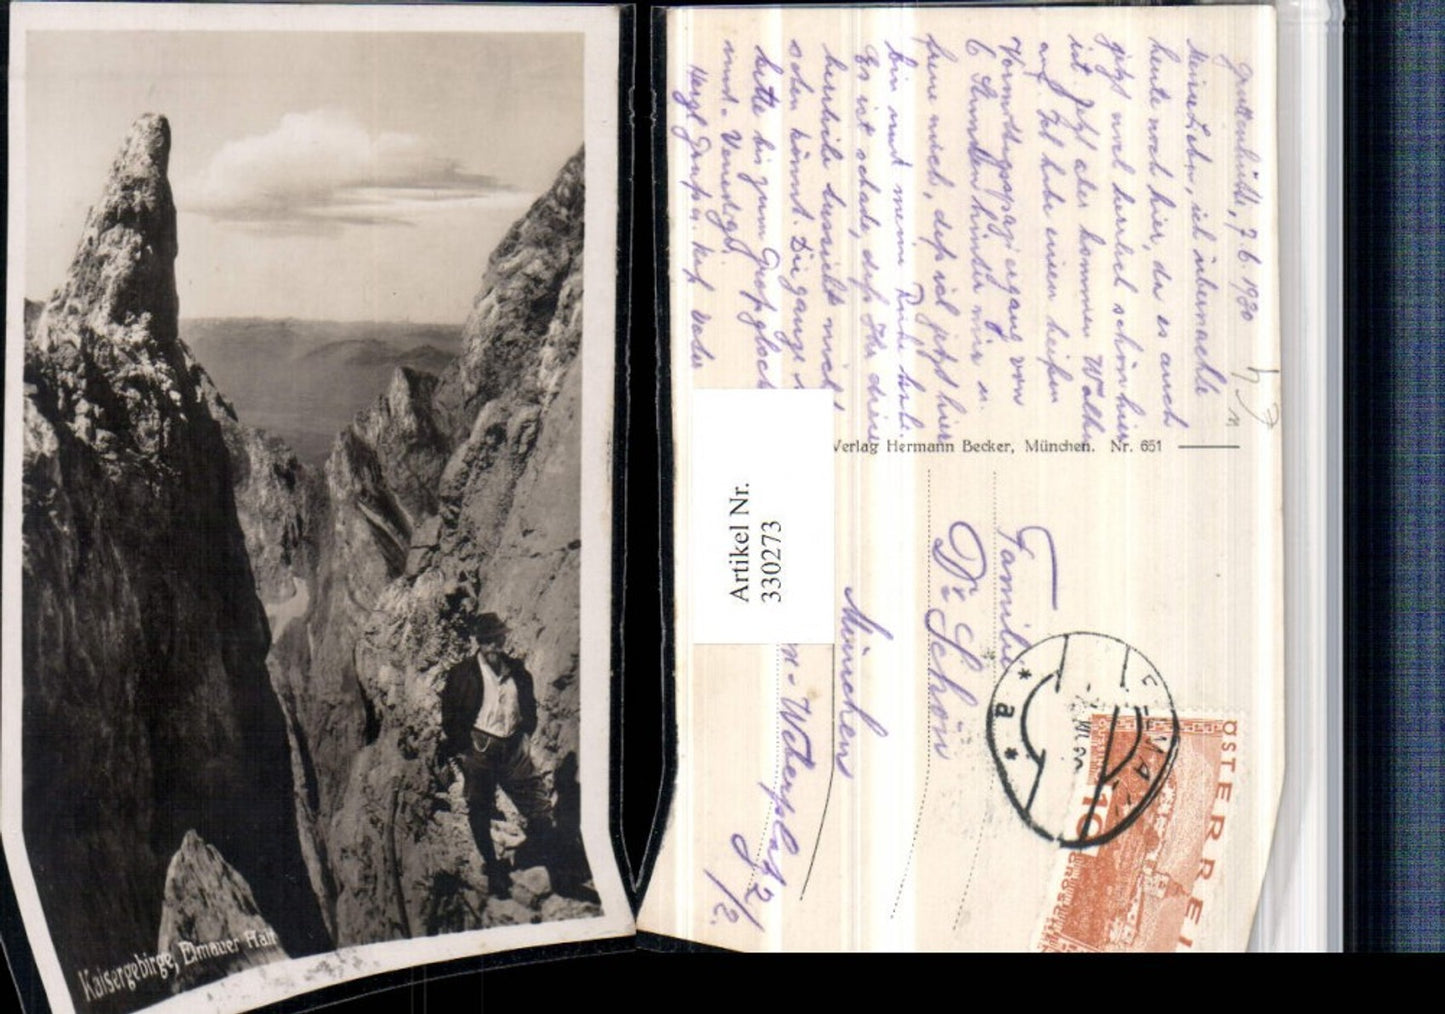 Kaisergebirge, Elmauer Halt
Gruttenhütte, 7.6.1930
Meine Lieben, ich übernachte
heute noch hier, da es auch
jetzt wol herrlich schön hier
ist. Jetzt aber kommen Wolken
auf. Ich habe einen heißen
Vormittagsspaziergang von
6 Stunden hinter mir u.
freue mich, daß ich jetzt hier
bin und meine Ruhe habe.
Es ist schade, daß Ihr diese
herrliche Fernsicht nicht
sehen könnt. Die ganze
Kette bis zum Großglock
und - Venedigr.
Herzl Gruß u. Kuß Vater
Verlag Hermann Becker, München. Nr. 651
Artikel Nr.
330273
Familie
Dr Schön
München
- Weberplatz 2
1/2.
* a *
ÖSTERREI
10